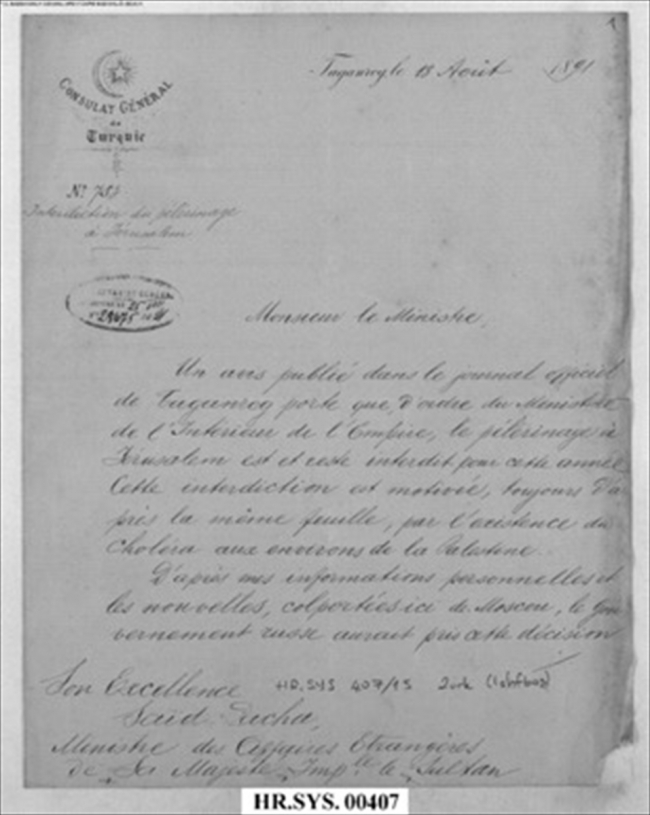 Taganrog le 13 Août 1891
CONSULAT GÉNÉRAL
de
Turquie
Nº
Interdiction du pélerinage
à Jérusalem
Monsieur le Ministre,
Un avis publié dans le journal officiel
de Taganrog porte que, d'ordre du Ministère
de l'Intérieur de l'Empire, le pélerinage à
Jérusalem est et reste interdit pour cette année
Cette interdiction est motivée, toujours d'a
près la même feuille, par l'existence du
Choléra aux environs de la Palestine.
D'après mes informations personnelles et
les nouvelles, colportées ici de Moscou, le Gou
vernement russe aurait pris cette décision
Son Excellence
HR.SYS 407/15
Saïd Pacha,
Ministre des Affaires Etrangères
de Sa Majesté Imp.le le Sultan
HR.SYS. 00407